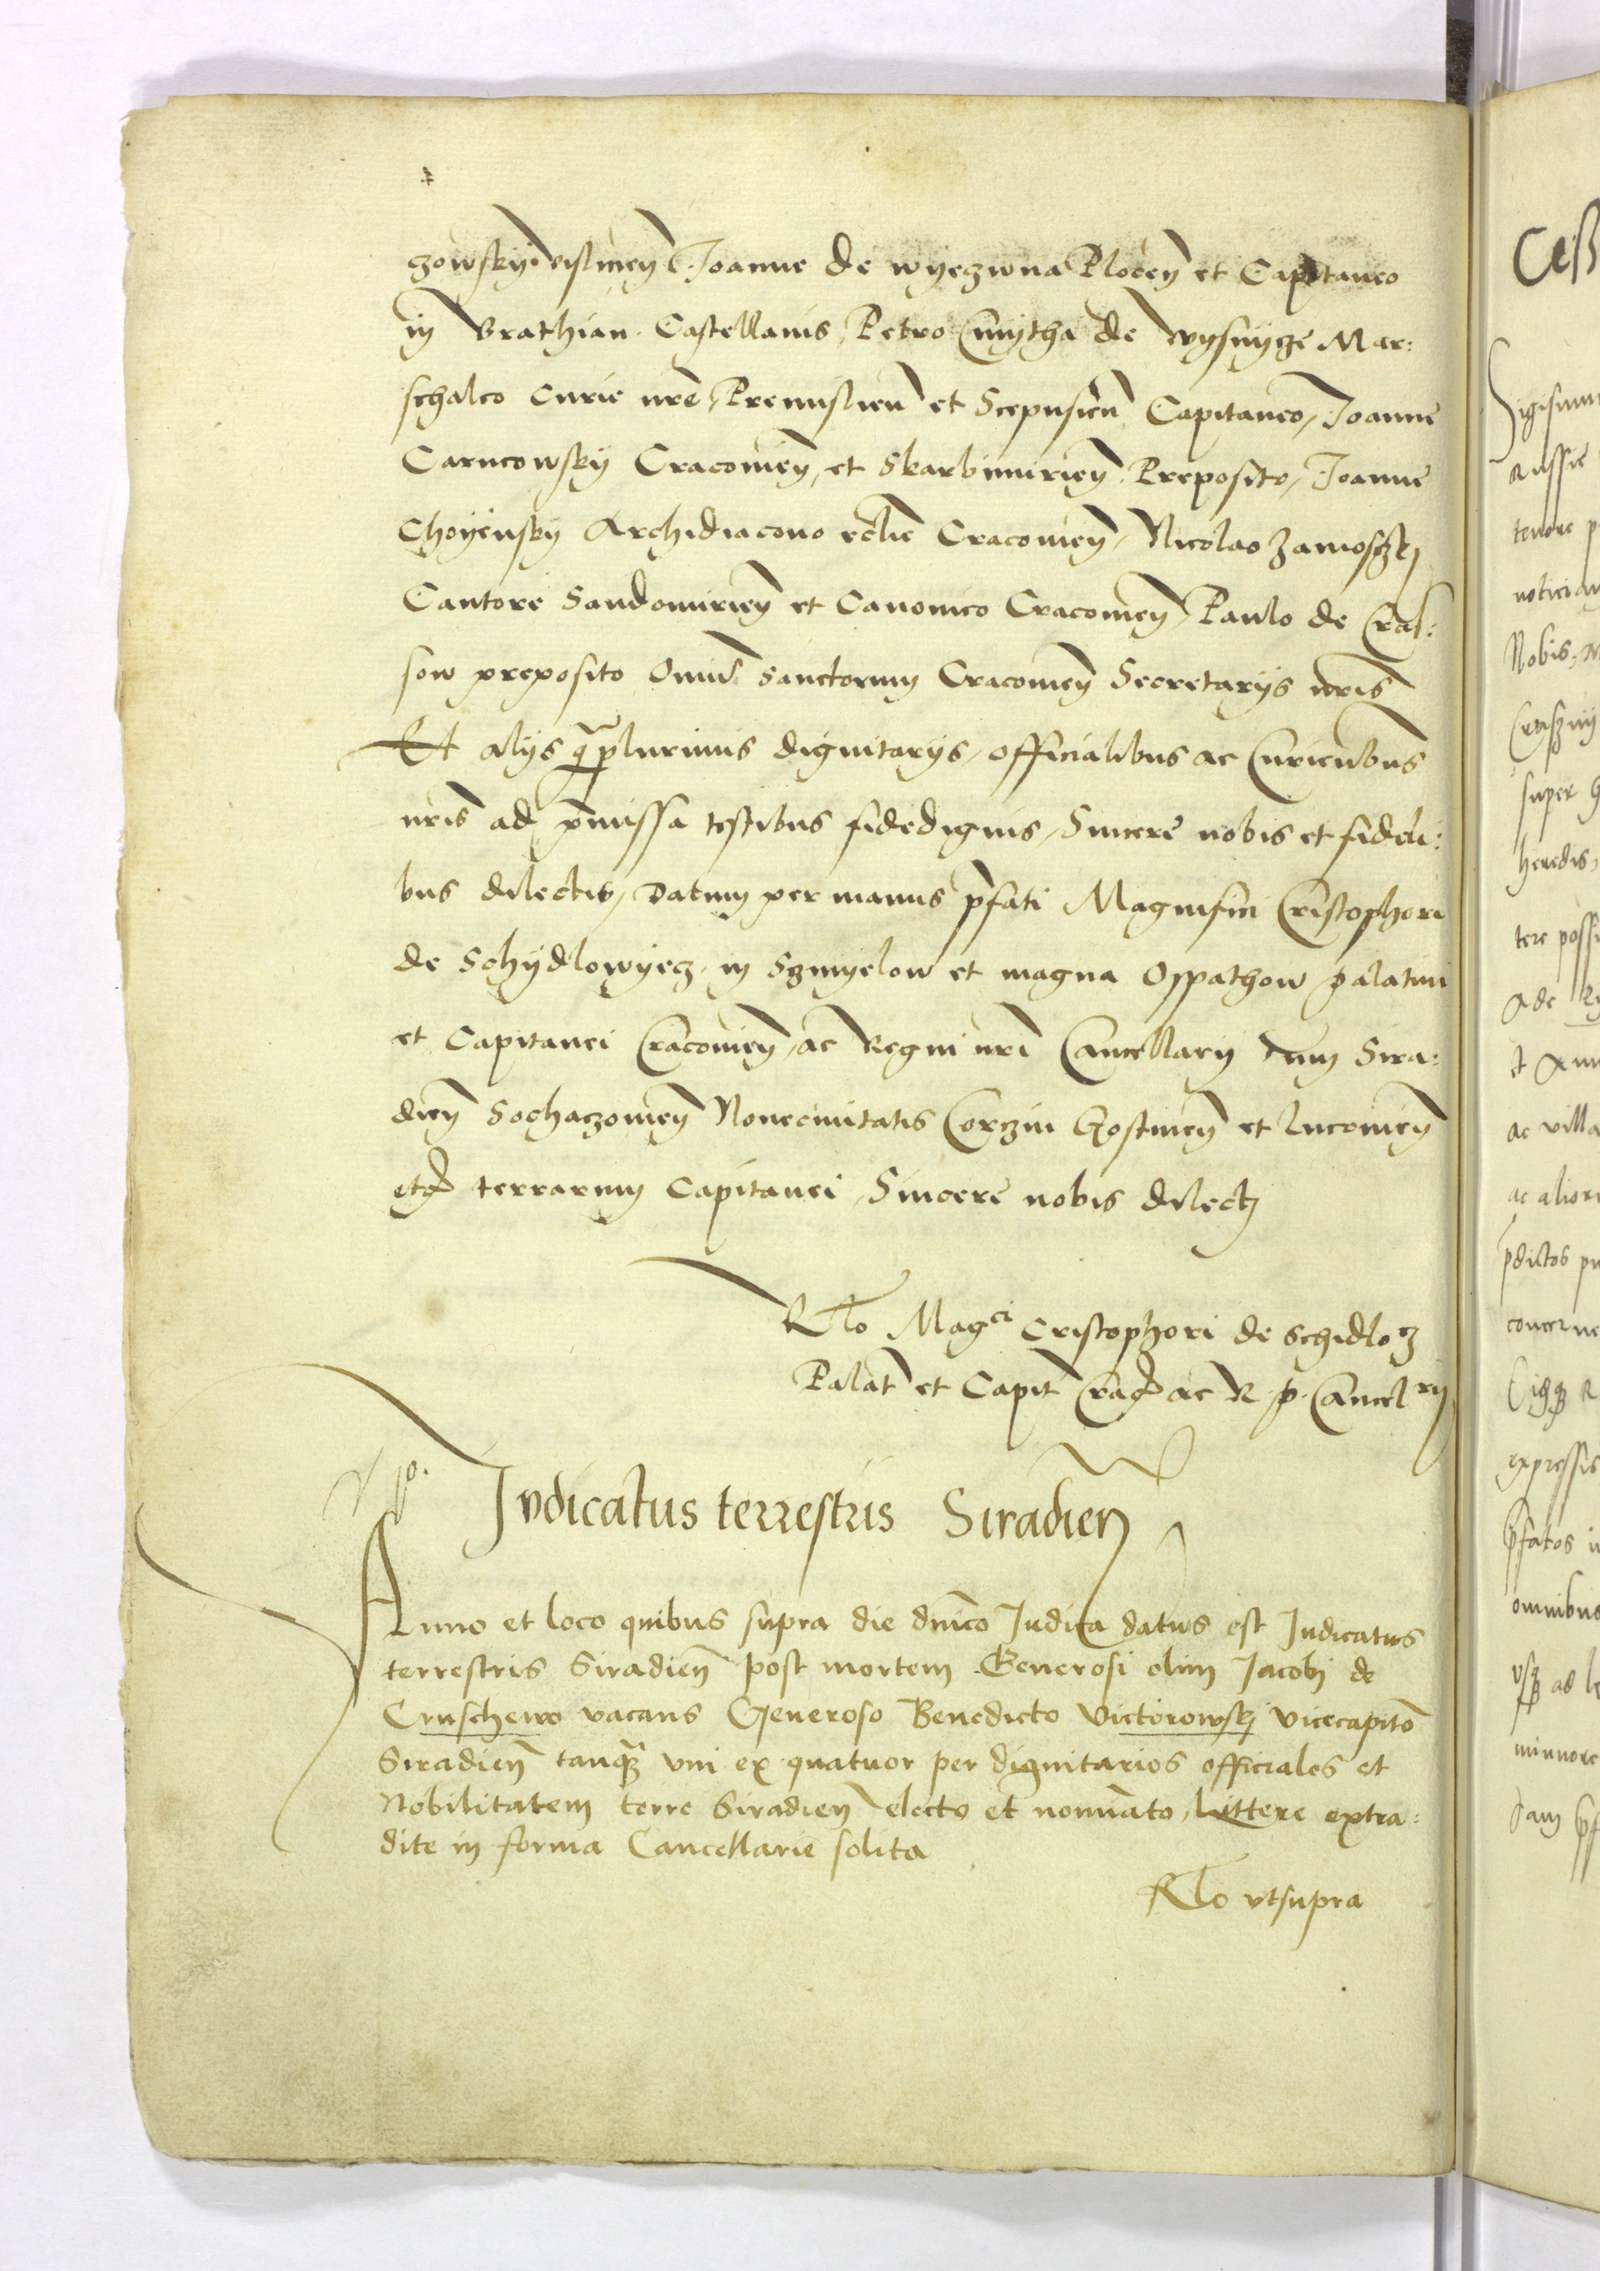 zowsky vislicień Joanne de wyeczwna Plocen̄ et Capitaneo
in Brathian Castellanis, Petro Cmytha de wysnycze Mar:
schalco Curie nr̄e, Premislien̄ et Scepusien̄ Capitaneo, Joanne
Carncowsky Cracovien̄, et Skarbimirien̄ Preposito, Joanne
Choyensky Archidiacono ecclīe Cracovien̄, Nicolao Zamosczkj
Cantore Sandomirien̄ et Canonico Cracovien̄, Paulo de Craſ:
sow preposito Omniū Sanctorum Cracovien̄ Secretarijs nr̄is
Et alijs q̄plurimis dignitarijs, officialibus ac Curien̄bus
nr̄is ad p̄missa testibus fidedignis, Sincere nobis et fideli:
bus dilectis, Datum per manus p̄fati Magnifici Cristophori
de Schydlowyecz, in Szmyelow et magna Oppathow palatini
et Capitanei Cracovien̄, ac Regni nr̄i Cancellarij tum Sira:
dien̄ Sochaczovien̄ Novecivitatis Corczin Gostinen̄ et Lucovien̄
etc̄ terrarum Capitanei, Sincere nobis dilectj
Rl̄o Mag^ci Cristophori de Schidlo^cz
Palat̄ et Capit̄ Crac̄ ac R. p. Cancel^rij
Iudicatus terrestris Siradien̄
Anno et loco quibus supra die dn̄ico Judica datus est Judicatus
terrestris Siradien̄ post mortem Generosi olim Jacobj de
Cruschewo vacans Generoso Benedicto Victorowskj vicecapit̄o
Siradien̄ tanq̄ uni ex quatuor per dignitarios officiales et
Nobilitatem terre Siradien̄ electo et nominato, Littere extra:
dite in forma Cancellarie solita
Rl̄o vtsupra